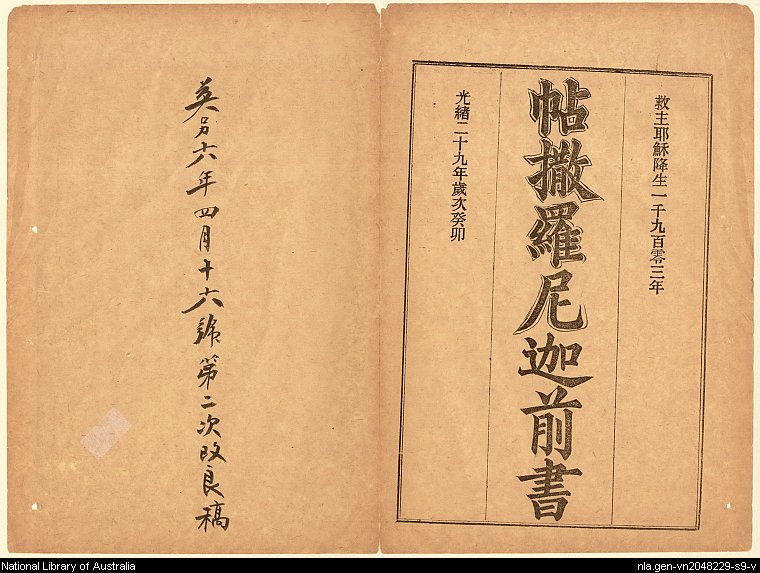 救主耶穌降生一千九百零三年
帖撒羅尼迦前書
光緒二十九年歲次癸卯
英另六年四月十六號第二次改良稿
National Library of Australia
nla.gen-vn2048229-s9-v